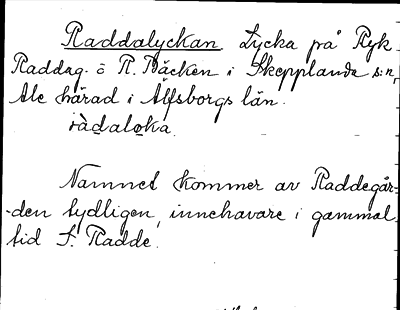 Raddalyckan Lycka på Ryk
Raddag. o R. Bäcken i Skepplanda s:n,
Ale härad i Älfsborgs län.
ràdaloka
Namnet kommer av Raddegår-
-den tydligen, innehavare i gammal
tid J. Radde.